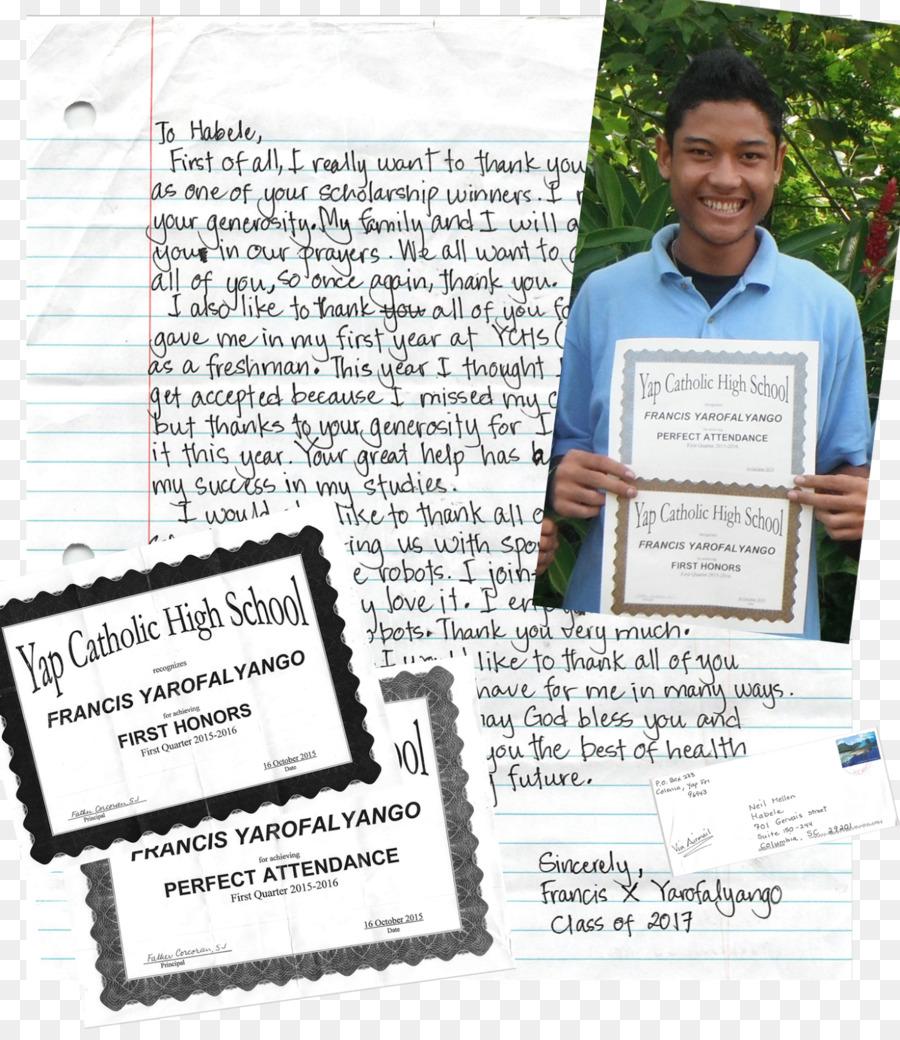 To Habele,
First of all, I really want to thank you
as one of your scholarship winners. I
your generosity. My family and I will
your in our prayers. We all want to
all of you, so once again, thank you.
I also like to thank you all of you
gave me in my first year at YCHS
as a freshman. This year I thought
get accepted because I missed my
but thanks to your generosity for I
it this year. Your great help has
my success in my studies.
I would like to thank all
us with
robots. I join-
love it. I
Thank you very much.
I would like to thank all of you
have for me in many ways.
may God bless you and
you the best of health
future.
Sincerely,
Francis X Yarofalyango
Class of 2017
Yap Catholic High School
recognizes
FRANCIS YAROFALYANGO
for achieving
PERFECT ATTENDANCE
First Quarter 2015-2016
Yap Catholic High School
recognizes
FRANCIS YAROFALYANGO
for achieving
FIRST HONORS
First Quarter 2015-2016
Yap Catholic High School
recognizes
FRANCIS YAROFALYANGO
for achieving
FIRST HONORS
First Quarter 2015-2016
16 October 2015
Date
Father Corcoran, SJ
Principal
FRANCIS YAROFALYANGO
for achieving
PERFECT ATTENDANCE
First Quarter 2015-2016
16 October 2015
Date
Father Corcoran, SJ
Principal
P.O. Box
Colonia, Yap
96943
Via Airmail
Neil Mellen
Habele
701 Gervais Street
Suite 150-244
Columbia, SC 29201